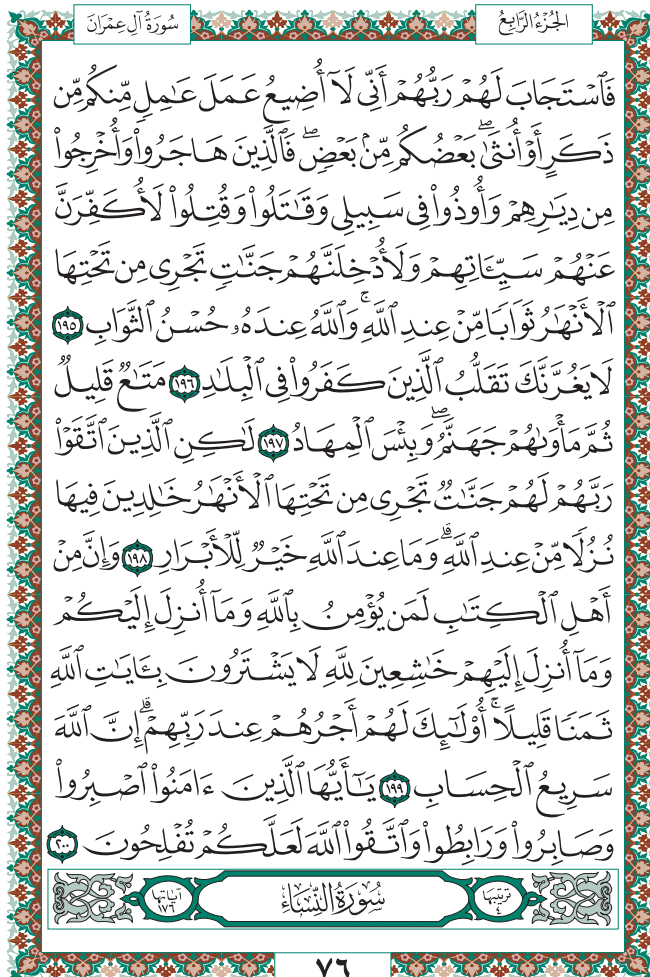 الجُزْءُ الرَّابِعُ
سُورَةُ آلِ عِمْرَانَ
فَٱسْتَجَابَ لَهُمْ رَبُّهُمْ أَنِّي لَآ أُضِيعُ عَمَلَ عَٰمِلٖ مِّنكُم مِّن
ذَكَرٍ أَوْ أُنثَىٰۖ بَعْضُكُم مِّنۢ بَعْضٖۖ فَٱلَّذِينَ هَاجَرُواْ وَأُخْرِجُواْ
مِن دِيَٰرِهِمْ وَأُوذُواْ فِي سَبِيلِي وَقَٰتَلُواْ وَقُتِلُواْ لَأُكَفِّرَنَّ
عَنْهُمْ سَيِّـَٔاتِهِمْ وَلَأُدْخِلَنَّهُمْ جَنَّٰتٖ تَجْرِي مِن تَحْتِهَا
ٱلْأَنْهَٰرُ ثَوَابٗا مِّنْ عِندِ ٱللَّهِۚ وَٱللَّهُ عِندَهُۥ حُسْنُ ٱلثَّوَابِ ١٩٥
لَا يَغُرَّنَّكَ تَقَلُّبُ ٱلَّذِينَ كَفَرُواْ فِي ٱلْبِلَٰدِ ١٩٦ مَتَٰعٞ قَلِيلٞ
ثُمَّ مَأْوَىٰهُمْ جَهَنَّمُۖ وَبِئْسَ ٱلْمِهَادُ ١٩٧ لَٰكِنِ ٱلَّذِينَ ٱتَّقَوْاْ
رَبَّهُمْ لَهُمْ جَنَّٰتٞ تَجْرِي مِن تَحْتِهَا ٱلْأَنْهَٰرُ خَٰلِدِينَ فِيهَا
نُزُلٗا مِّنْ عِندِ ٱللَّهِۗ وَمَا عِندَ ٱللَّهِ خَيْرٞ لِّلْأَبْرَارِ ١٩٨ وَإِنَّ مِنْ
أَهْلِ ٱلْكِتَٰبِ لَمَن يُؤْمِنُ بِٱللَّهِ وَمَآ أُنزِلَ إِلَيْكُمْ
وَمَآ أُنزِلَ إِلَيْهِمْ خَٰشِعِينَ لِلَّهِ لَا يَشْتَرُونَ بِـَٔايَٰتِ ٱللَّهِ
ثَمَنٗا قَلِيلًاۚ أُوْلَٰٓئِكَ لَهُمْ أَجْرُهُمْ عِندَ رَبِّهِمْۗ إِنَّ ٱللَّهَ
سَرِيعُ ٱلْحِسَابِ ١٩٩ يَٰٓأَيُّهَا ٱلَّذِينَ ءَامَنُواْ ٱصْبِرُواْ
وَصَابِرُواْ وَرَابِطُواْ وَٱتَّقُواْ ٱللَّهَ لَعَلَّكُمْ تُفْلِحُونَ ٢٠٠
ترتيبها ٤
سُورَةُ النِّسَاءِ
آياتها ١٧٦
٧٦